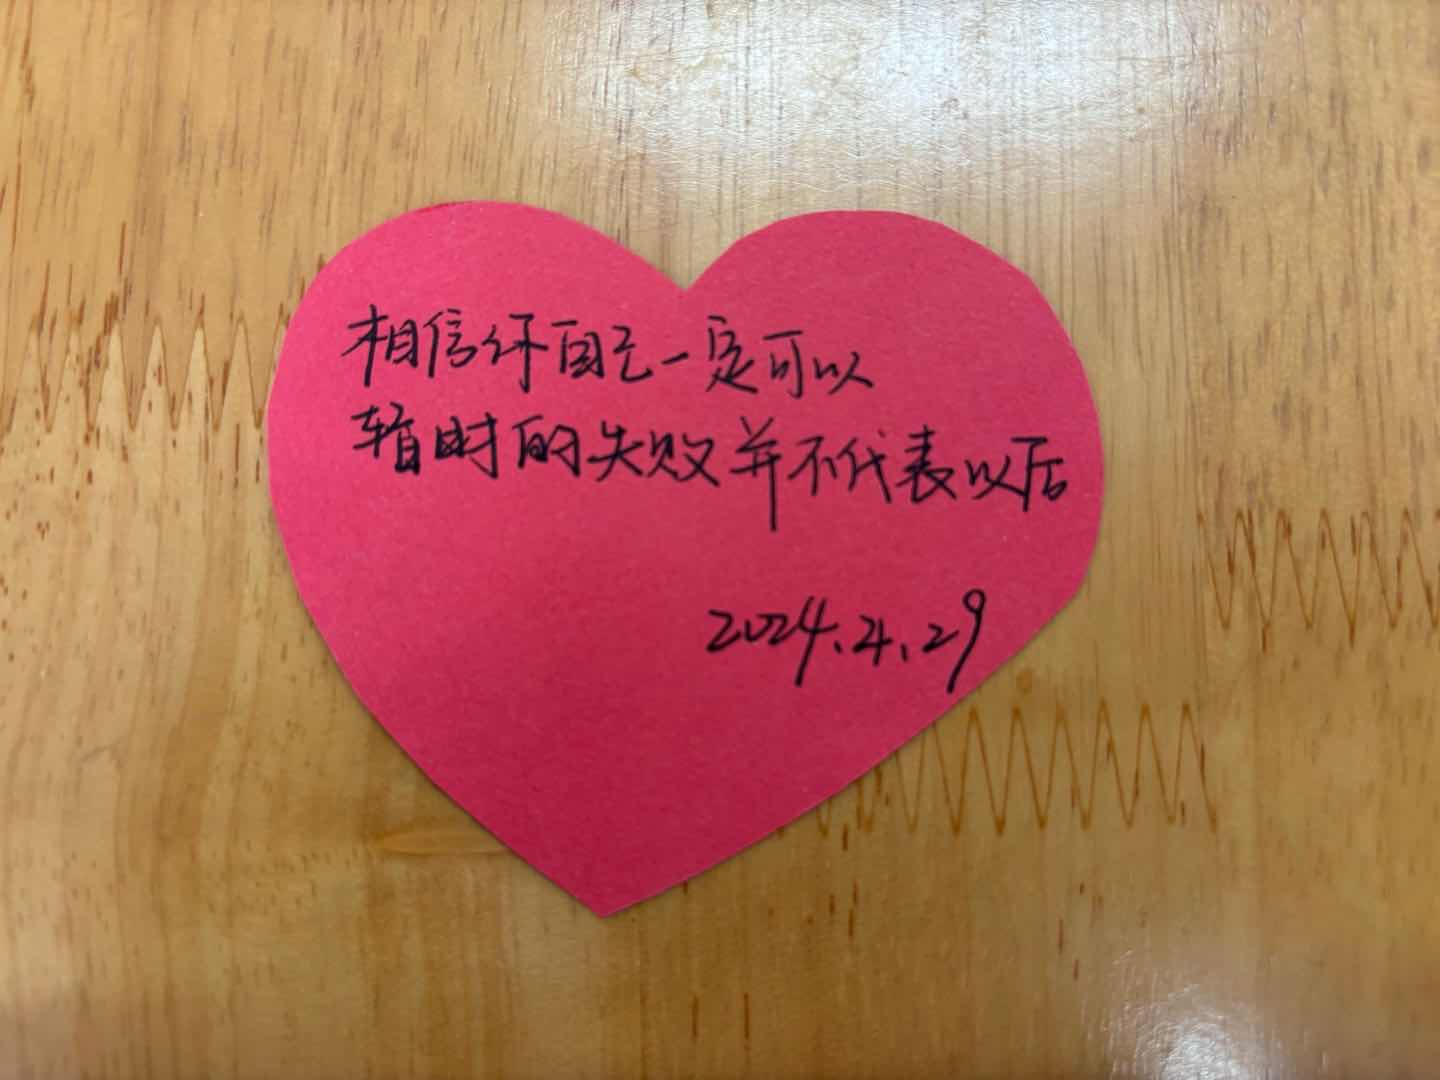 相信你自己一定可以
暂时的失败并不代表以后
2024.4.29